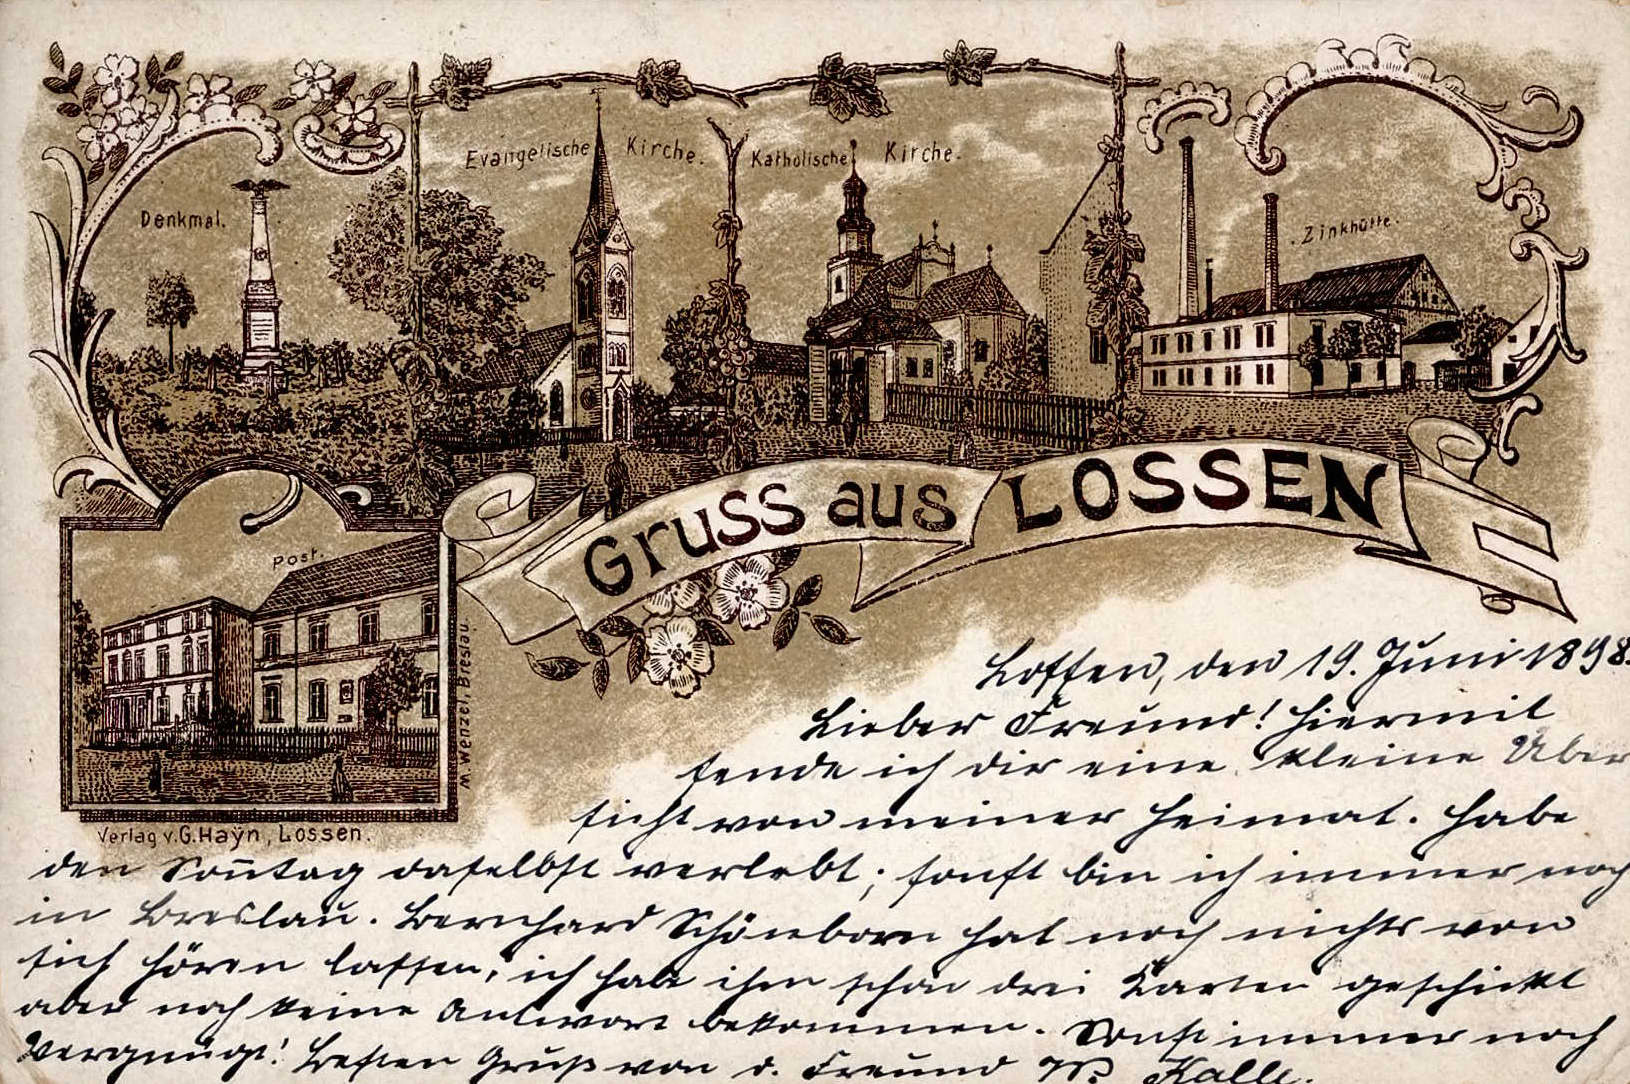 Denkmal.
Evangelische Kirche.
Katholische Kirche.
Zinkhütte.
Gruss aus LOSSEN
Post.
M. Wenzel, Breslau.
Verlag v. G. Haÿn, Lossen.
Lossen, den 19. Juni 1898.
Lieber Freund! Hiermit
sende ich dir eine kleine Über
sicht von meiner Heimat. Habe
den Soñtag daselbst verlebt; sonst bin ich immer noch
in Breslau. Bernhard Schönborn hat noch nichts von
sich hören lassen, ich habe ihm schon drei Karten geschickt
aber noch keine Antwort bekommen. Sonst immer noch
Vergnügt! Besten Gruß von d. Freund Kalle.